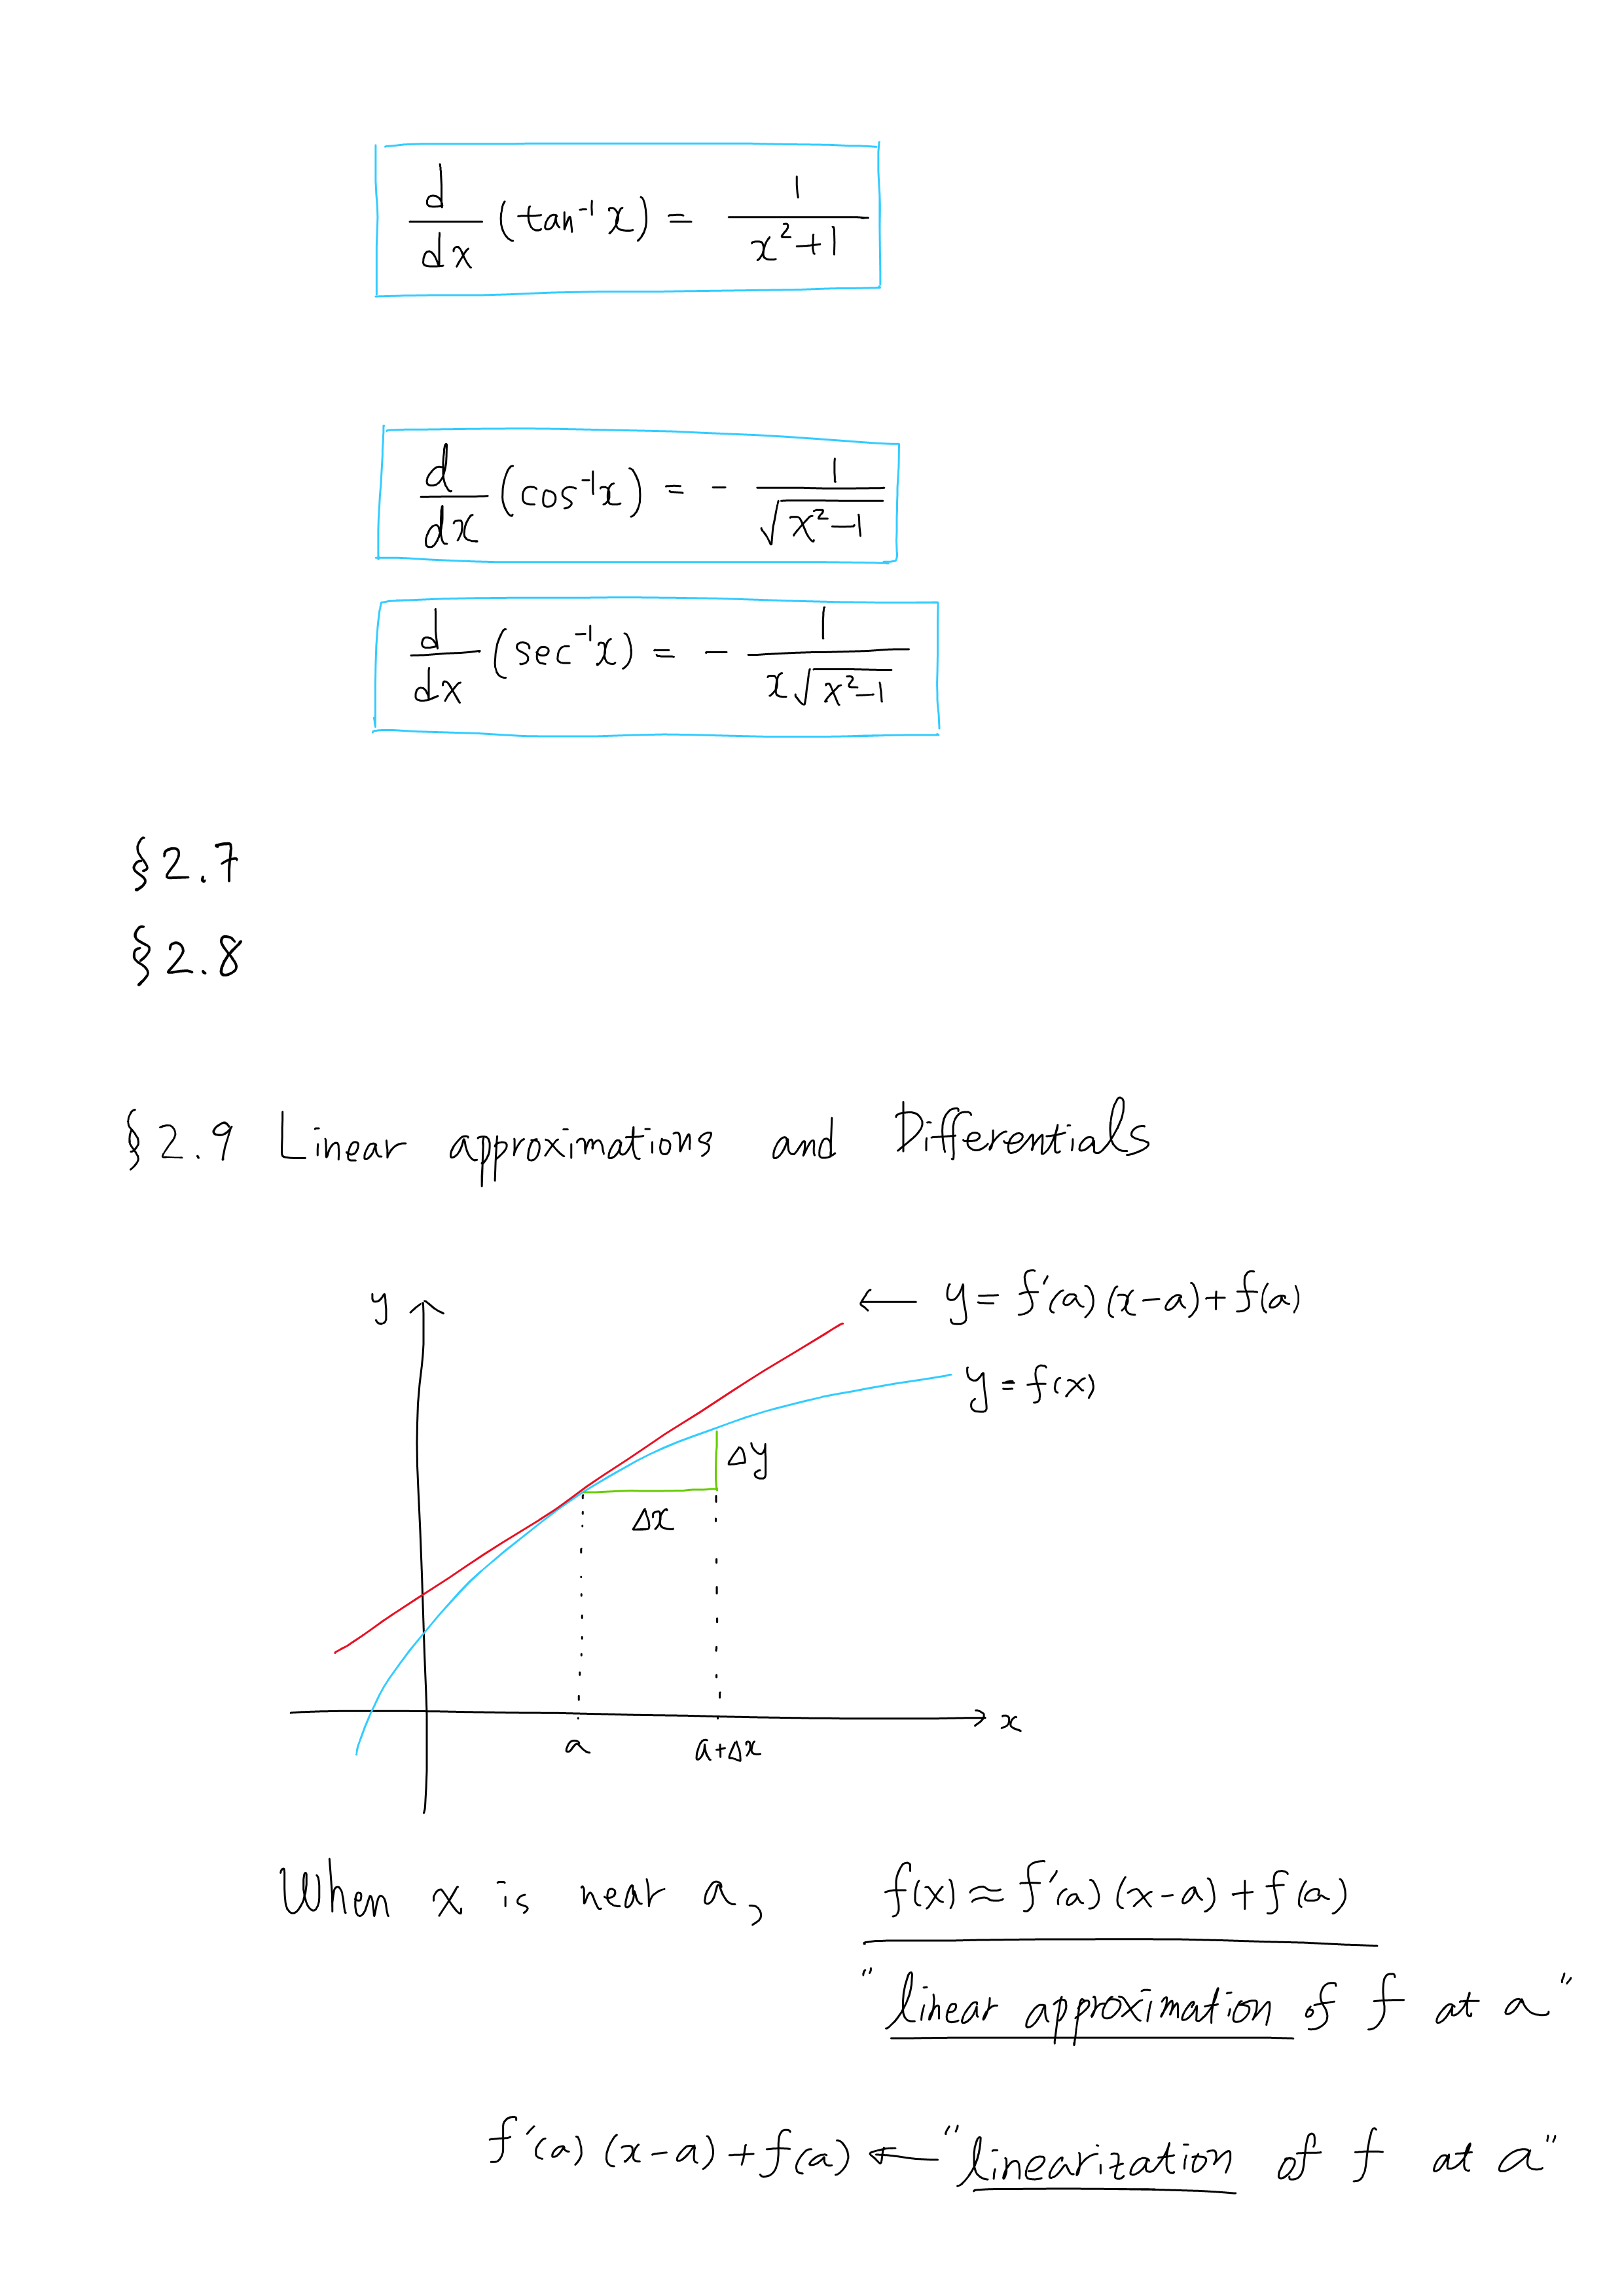 d/dx (tan⁻¹x) = 1/(x²+1)
d/dx (cos⁻¹x) = - 1/√(x²-1)
d/dx (sec⁻¹x) = - 1/(x√(x²-1))
§2.7
§2.8
§2.9 Linear approximations and Differentials
y
y = f'(a)(x-a)+f(a)
y = f(x)
Δy
Δx
x
a
a+Δx
When x is near a, f(x) ≈ f'(a)(x-a)+f(a)
"linear approximation of f at a"
f'(a)(x-a)+f(a) ← "linearization of f at a"